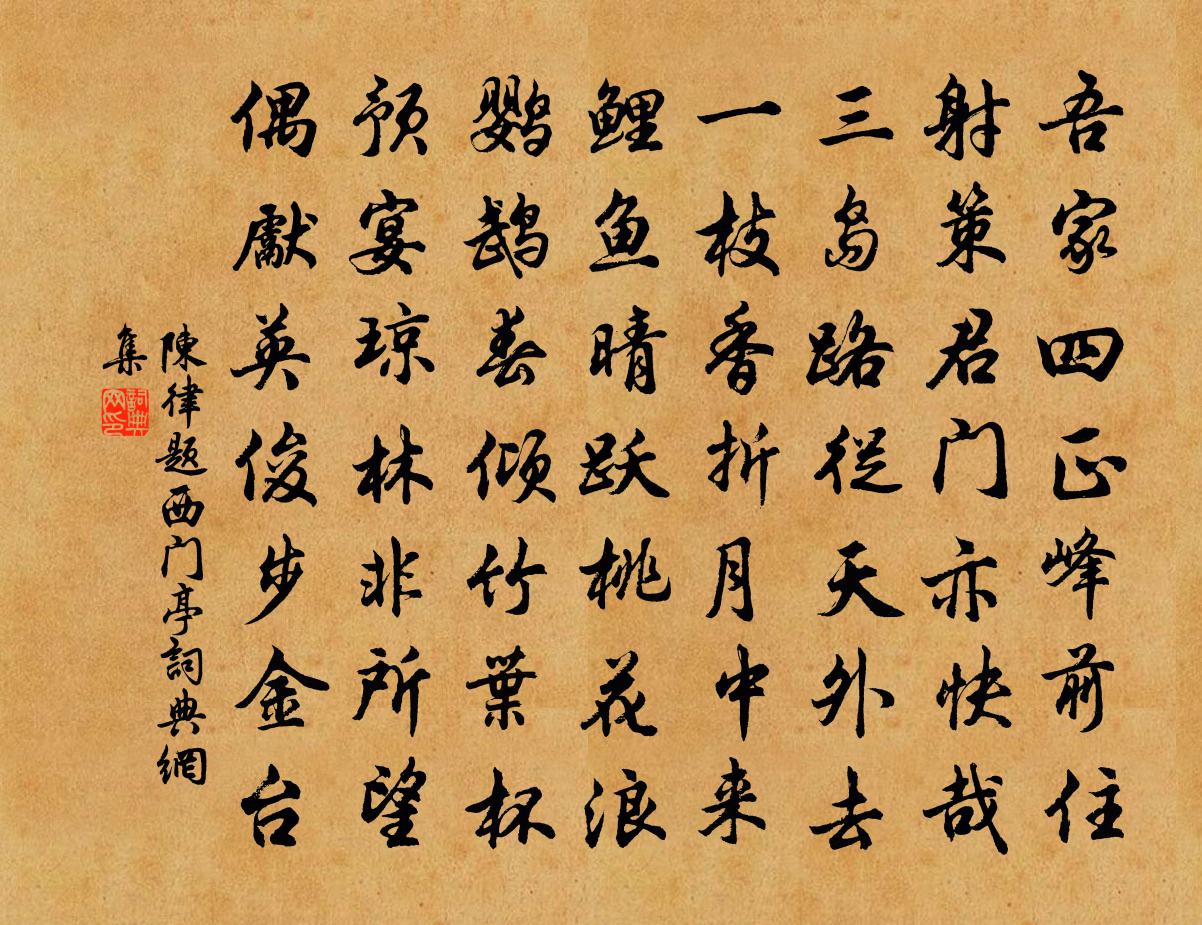 吾家四正峰前住
射策君门亦快哉
三岛路从天外去
一枝香折月中来
鲤鱼晴跃桃花浪
鹦鹉春倾竹葉杯
预宴琼林非所望
偶獻英俊步金台
陳律题西门亭詞典網
集
詞典
网印